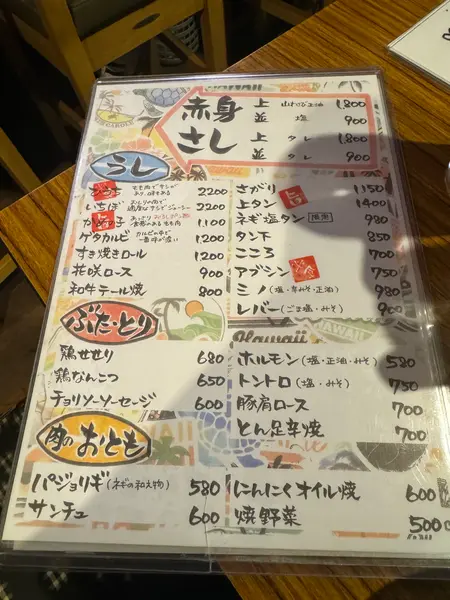 赤身 上 山わさび正油 1,800
並 塩 900
さし 上 タレ 1,800
並 タレ 900
うし
2200
いちぼ 2200
1,100
ゲタカルビ カルビの中で一番味が濃い 1,200
すき焼きロール 1,200
花咲ロース 900
和牛テール焼 800
さがり 1,150
上タン 1400
ネギ塩タン 限定 980
タン下 850
こころ 700
アブシン 750
ミノ(塩・辛みそ・正油) 980
レバー(ごま塩・みそ) 900
ぶた・とり
鶏せせり 680
鶏なんこつ 650
チョリソーソーセージ 600
ホルモン(塩・正油・みそ) 580
トントロ(塩・みそ) 750
豚肩ロース 700
とん足辛焼 700
肉のおとも
パジョリギ(ネギの和え物) 580
サンチュ 600
にんにくオイル焼 600
焼野菜 500
HAWAII
Hawaii